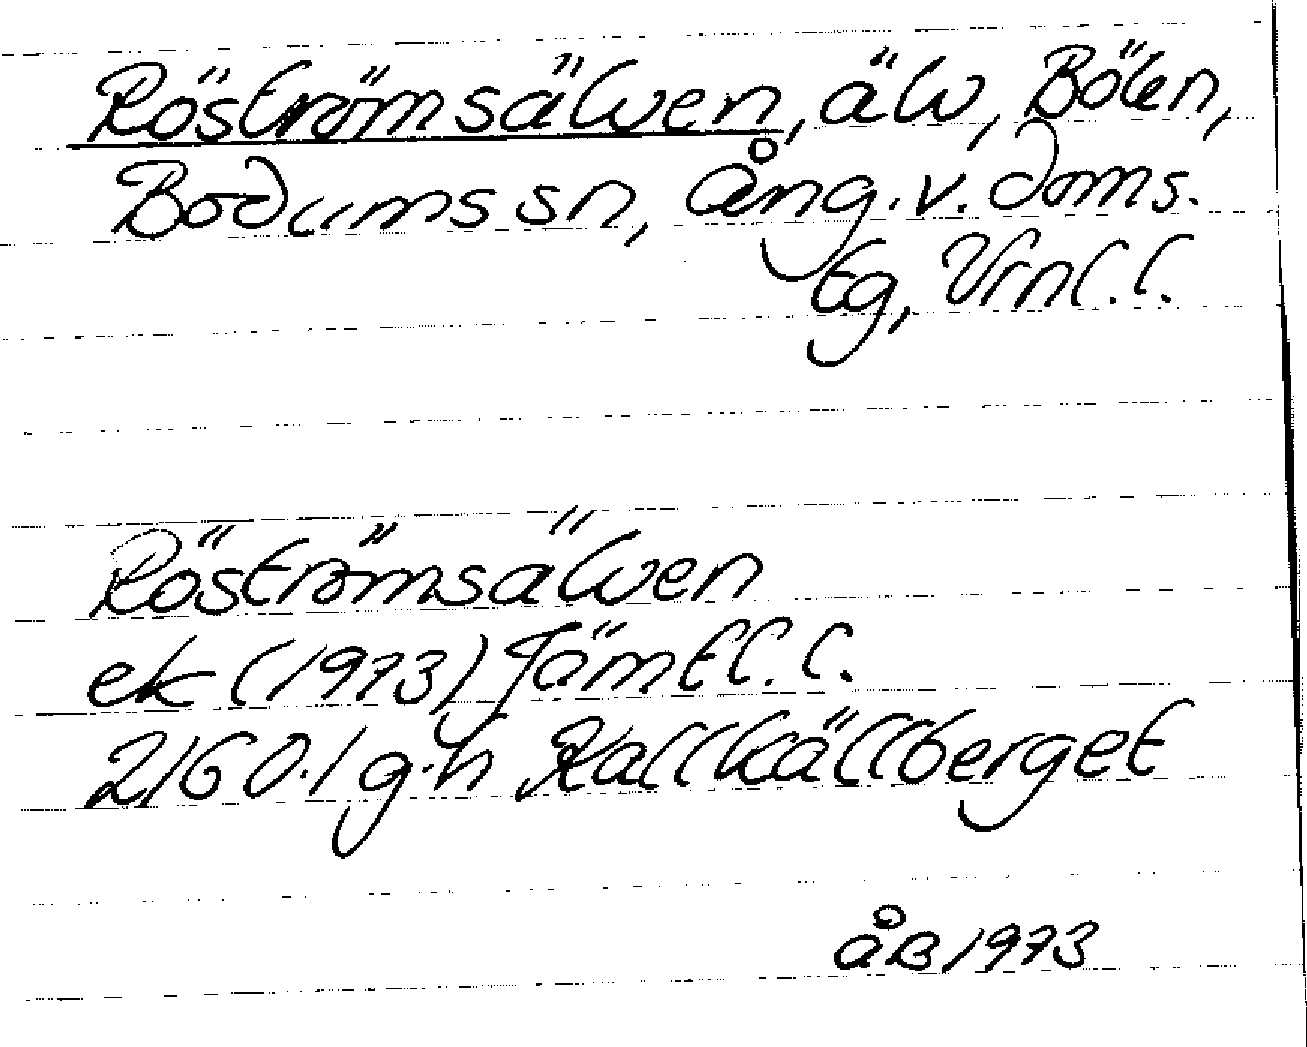 Röströmsälven, älv, Bölen,
Bodums sn, Ång. v. doms.
tg, Vrnl. l.
Röströmsälven
ek (1973) Jämtl. l.
21G 0.1 g-h Kallkällberget
ÅB 1973